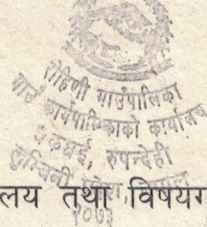 रोहिणी गाउँपालिका
गाउँ कार्यपालिकाको कार्यालय
धकधई, रुपन्देही
लुम्बिनी प्रदेश, नेपाल
लय तथा विषयग
२०७३